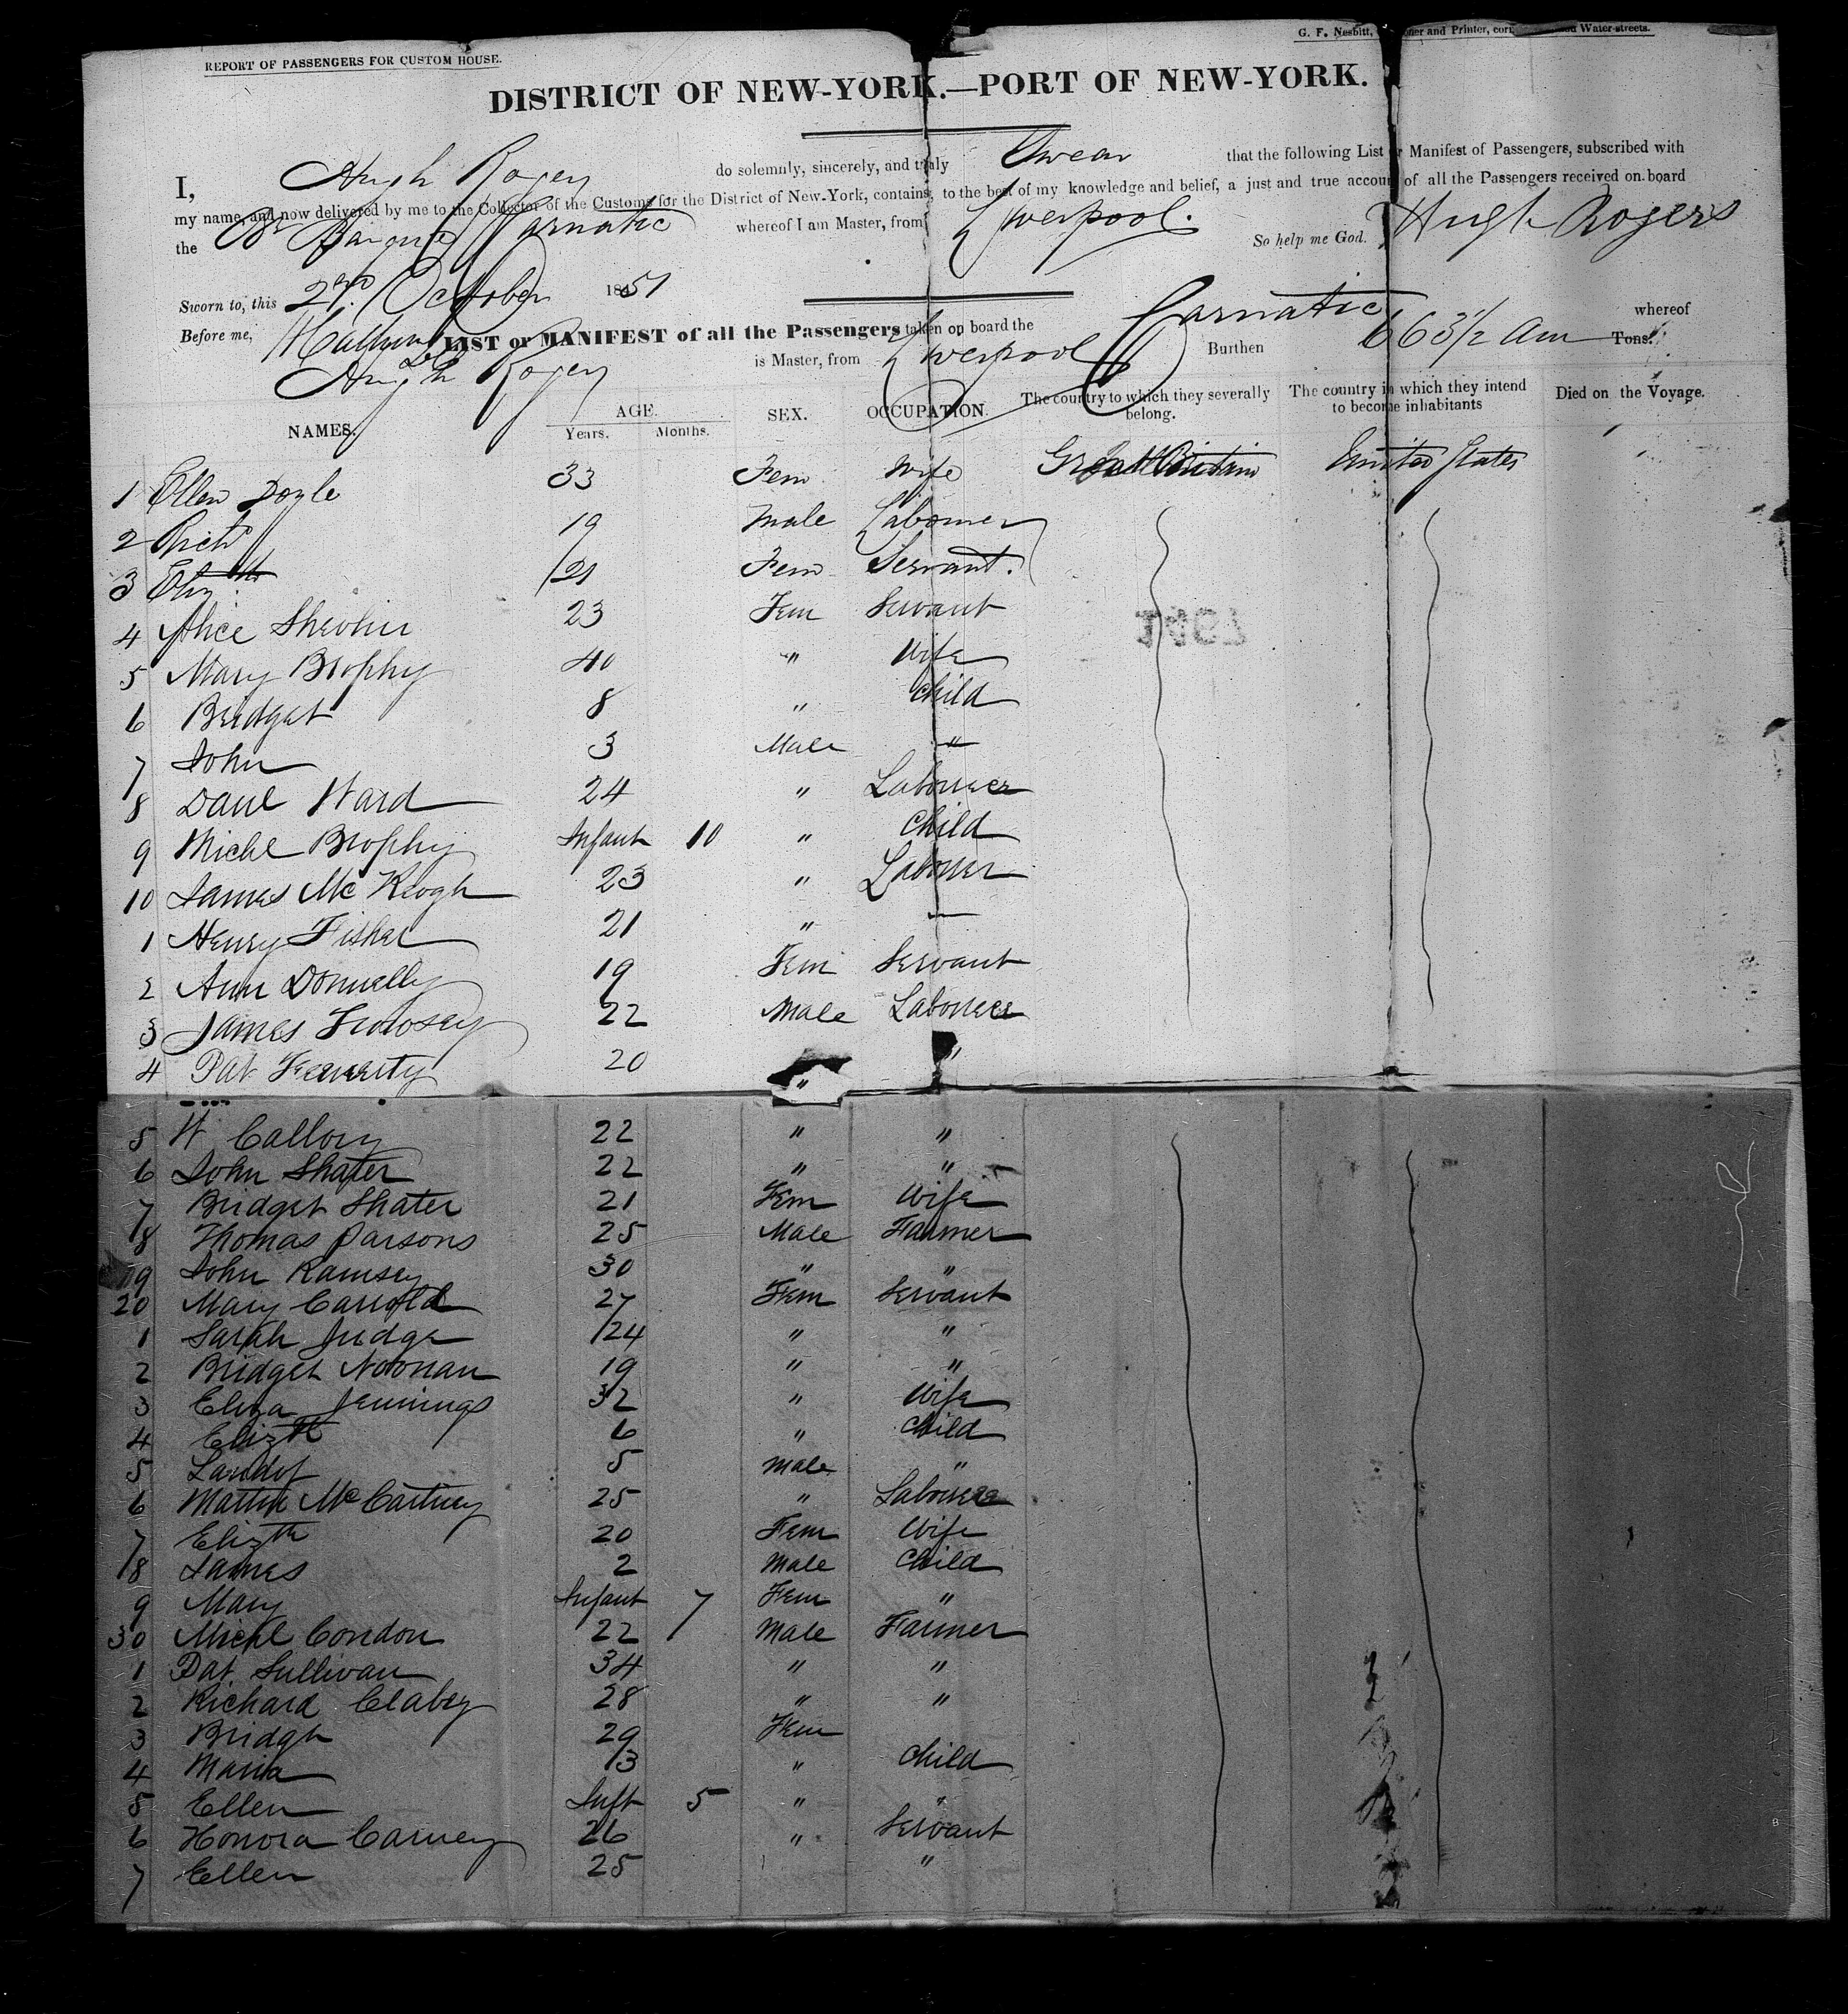 G. F. Nesbitt, and Printer, Water-streets.
REPORT OF PASSENGERS FOR CUSTOM HOUSE.
DISTRICT OF NEW-YORK.—PORT OF NEW-YORK.
I, Hugh Rogers do solemnly, sincerely, and truly Swear that the following List or Manifest of Passengers, subscribed with
my name, and now delivered by me to the Collector of the Customs for the District of New-York, contains, to the best of my knowledge and belief, a just and true account of all the Passengers received on board
the Br Barque Carnatic whereof I am Master, from Liverpool.
So help me God. Hugh Rogers
Sworn to, this 2nd October 1851
Before me,
LIST or MANIFEST of all the Passengers taken on board the Carnatic whereof
Hugh Rogers is Master, from Liverpool Burthen 663 1/2 Tons.
NAMES. AGE. SEX. OCCUPATION. The country to which they severally belong. The country in which they intend to become inhabitants Died on the Voyage.
Years. Months.
1 Ellen Doyle 33 Fem Wife Great Britain United States
2 Richd " 19 Male Labourer
3 Elizth 21 Fem Servant.
4 Alice Shevlin 23 Fem Servant
5 Mary Brophy 40 " Wife
6 Bridget 8 " Child
7 John 3 Male "
8 Danl Ward 24 " Labourer
9 Michl Brophy Infant 10 " Child
10 James McKeogh 23 " Labourer
1 Henry Fisher 21 " —
2 Ann Donnelly 19 Fem Servant
3 James 22 Male Labourer
4 Pat 20 " "
5 W Callory 22 " "
6 John Shater 22 " "
7 Bridget Shater 21 Fem Wife
8 Thomas Parsons 25 Male Farmer
19 John Ramsey 30 " "
20 Mary Carrold 27 Fem Servant
1 Sarah Judge 24 " "
2 Bridget Noonan 19 " "
3 Eliza Jennings 32 " Wife
4 Elizth 6 " Child
5 5 Male "
6 Martin McCartney 25 " Labourer
7 Elizth 20 Fem Wife
8 James 2 Male Child
9 Mary Infant 7 Fem "
30 Michl Condon 22 Male Farmer
1 Pat Sullivan 34 " "
2 Richard Clabey 28 " "
3 Bridgt 29 Fem
4 Maria 3 " Child
5 Ellen Inft 5 " "
6 Honora Carney 26 " Servant
7 Ellen 25 "